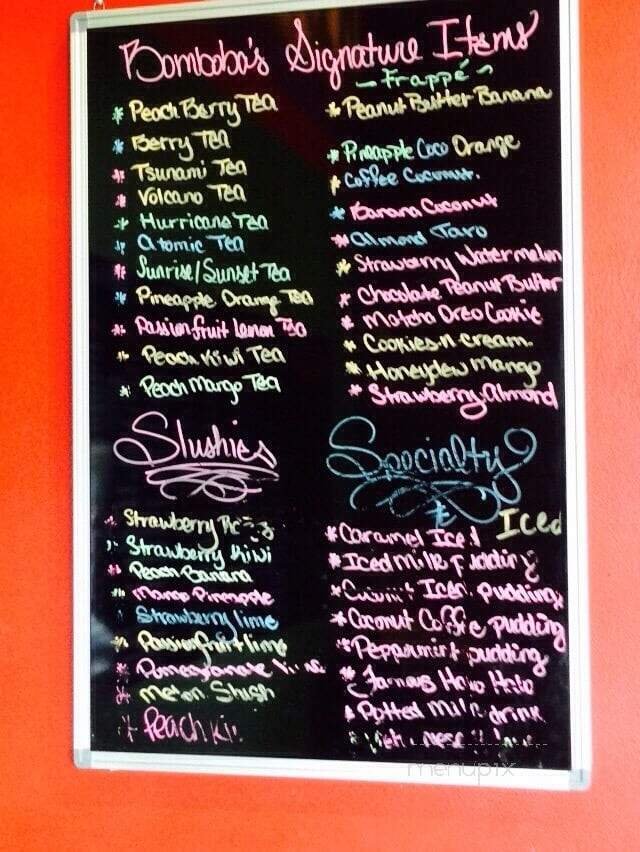 Bomboba's Signature Items
Peach Berry Tea
Berry Tea
Tsunami Tea
Volcano Tea
Hurricane Tea
Atomic Tea
Sunrise/Sunset Tea
Pineapple Orange Tea
Passion fruit Lemon Tea
Peach Kiwi Tea
Peach Mango Tea
~ Frappé ~
Peanut Butter Banana
Pineapple Coco Orange
Coffee Coconut.
Banana Coconut
Almond Taro
Strawberry Watermelon
Chocolate Peanut Butter
Matcha Oreo Cookie
Cookies-n-cream.
Honeydew Mango
Strawberry Almond
Slushies
Strawberry
Strawberry Kiwi
Peach Banana
Mango Pineapple
Strawberry lime
Passionfruit lime
Pomegranate
Melon Slush
Peach
Specialty
Iced
Caramel Iced
Iced Milk pudding
Iced pudding
Coconut Coffee pudding
Peppermint pudding
Famous Halo Halo
Potted Milk drink
menupix